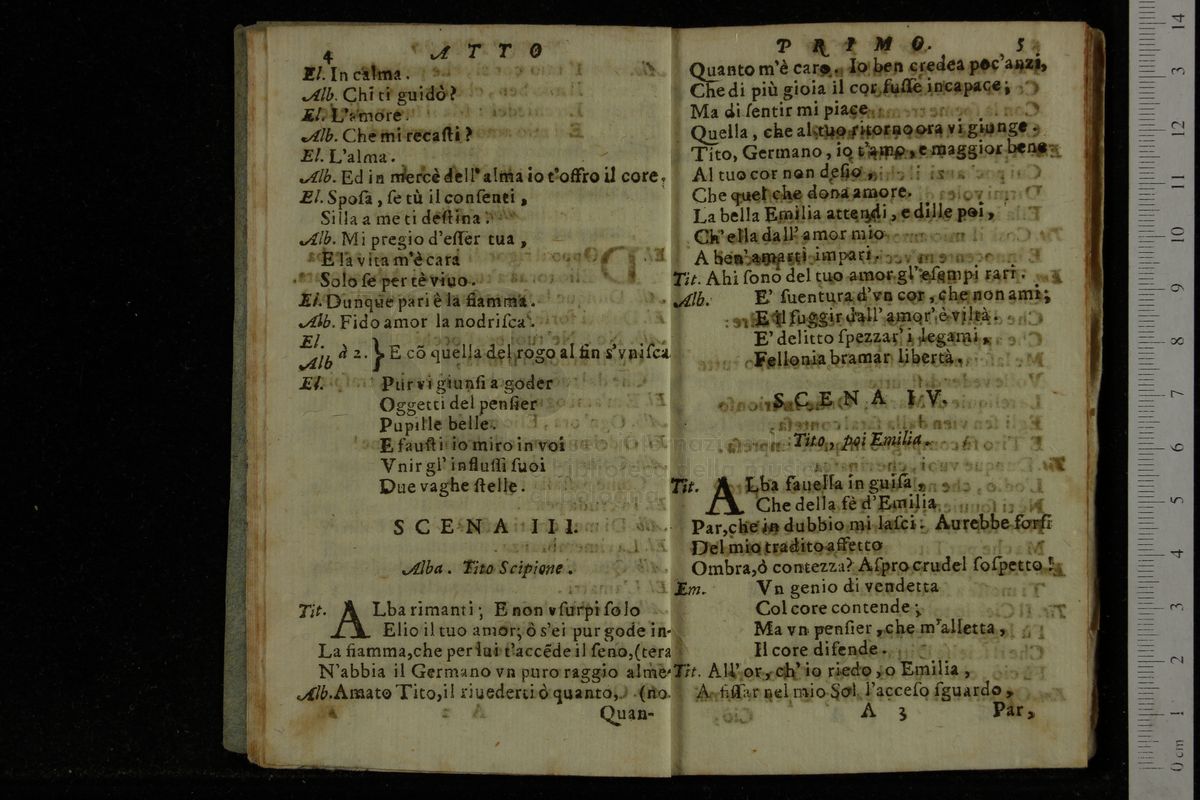 4 ATTO
El. In calma.
Alb. Chi ti guidò?
El. L'amore.
Alb. Che mi recaſti?
El. L'alma.
Alb. Ed in mercè dell'alma io t'offro il core.
El. Spoſa, ſe tù il conſenti,
Silla a me ti deſtina.
Alb. Mi pregio d'eſſer tua,
E la vita m'è cara
Solo ſe per tè viuo.
El. Dunque pari è la fiamma.
Alb. Fido amor la nodriſca.
El.
Alb à 2. } E cõ quella del rogo al fin s'vniſca
El. Pur vi giunſi a goder
Oggetti del penſier
Pupille belle.
E fauſti io miro in voi
Vnir gl'influſſi ſuoi
Due vaghe ſtelle.
SCENA III.
Alba. Tito Scipione.
Tit. ALba rimanti; E non vſurpi ſolo
Elio il tuo amor; ò s'ei pur gode in-
La fiamma, che per lui t'accẽde il ſeno, (tera
N'abbia il Germano vn puro raggio alme-
Alb. Amato Tito, il riuederti ò quanto, (no.
Quan-
PRIMO. 5
Quanto m'è caro. Io ben credea poc'anzi,
Che di più gioia il cor fuſſe incapace;
Ma di ſentir mi piace
Quella, che al tuo ritorno ora vi giunge.
Tito, Germano, io t'amo, e maggior bene
Al tuo cor non deſio,
Che quel che dona amore.
La bella Emilia attendi, e dille poi,
Ch'ella dall'amor mio
A ben'amarti impari.
Tit. Ahi ſono del tuo amor gl'eſempi rari.
Alb. E' ſuentura d'vn cor, che non ami;
E il fuggir dall'amor' è viltà.
E' delitto ſpezzar' i legami,
Fellonia bramar libertà.
SCENA IV.
Tito, poi Emilia.
Tit. ALba fauella in guiſa,
Che della fè d'Emilia
Par, che in dubbio mi laſci. Aurebbe forſi
Del mio tradito affetto
Ombra, ò contezza? Aſpro crudel ſoſpetto!
Em. Vn genio di vendetta
Col core contende;
Ma vn penſier, che m'alletta,
Il core difende.
Tit. All'or, ch'io riedo, o Emilia,
A fiſſar nel mio Sol l'acceſo ſguardo,
A 3 Par,